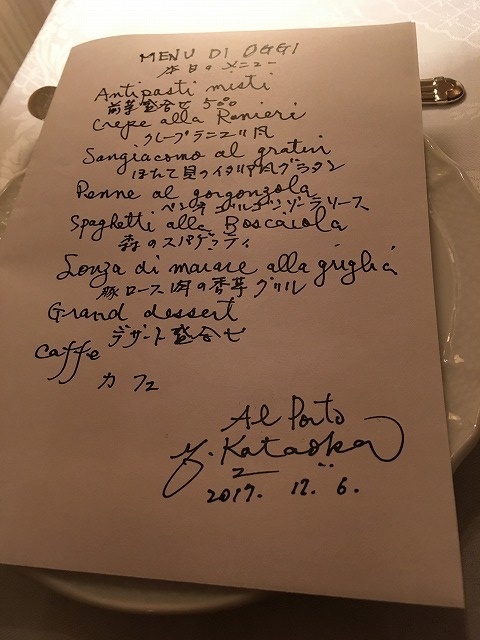 MENU DI OGGI
本日のメニュー
Antipasti misti
前菜盛合せ
Crepe alla Ranieri
クレープラニエリ風
Sangiacomo al gratin
ほたて貝のイタリア風グラタン
Penne al gorgonzola
ペンネ ゴルゴンゾーラソース
Spaghetti alla Boscaiola
森のスパゲッティ
Lonza di maiare alla griglia
豚ロース肉の香草グリル
Grand dessert
デザート盛合せ
Caffe
カフェ
Al Porto
Y. Kataoka
2017. 12. 6.